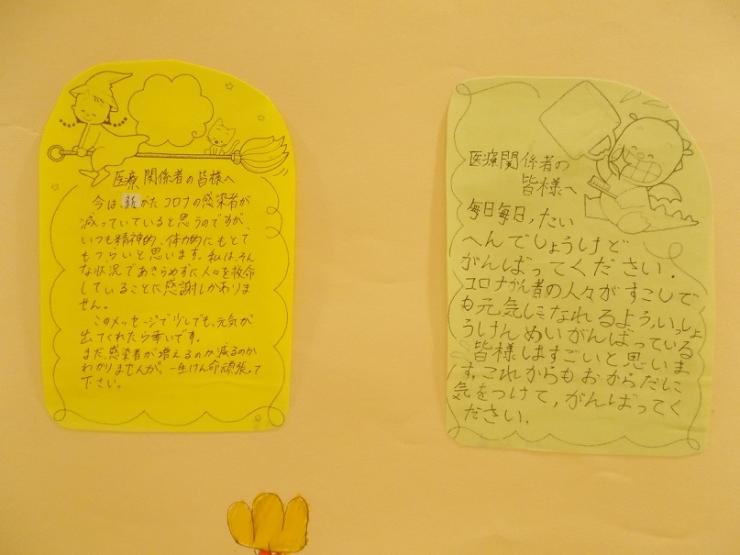 医療関係者の皆様へ
今は新がたコロナの感染者が
減っていていると思うのですが、
いつも精神的、体力的にもとて
もつらいと思います。私は、そん
な状況であきらめずに人々を救命
していることに感謝しかありま
せん。
このメッセージで少しでも、元気が
出てくれたら幸いです。
まだ、感染者が増えるのか減るのか
わかりませんが、一生けん命頑張って
下さい。
医療関係者の
皆様へ
毎日毎日、たい
へんでしょうけど
がんばってください。
コロナかん者の人々がすこしで
も元気になれるよう、いっしょ
うけんめいがんばっている
皆様はすごいと思いま
す。これからもおからだに
気をつけて、がんばってく
ださい。